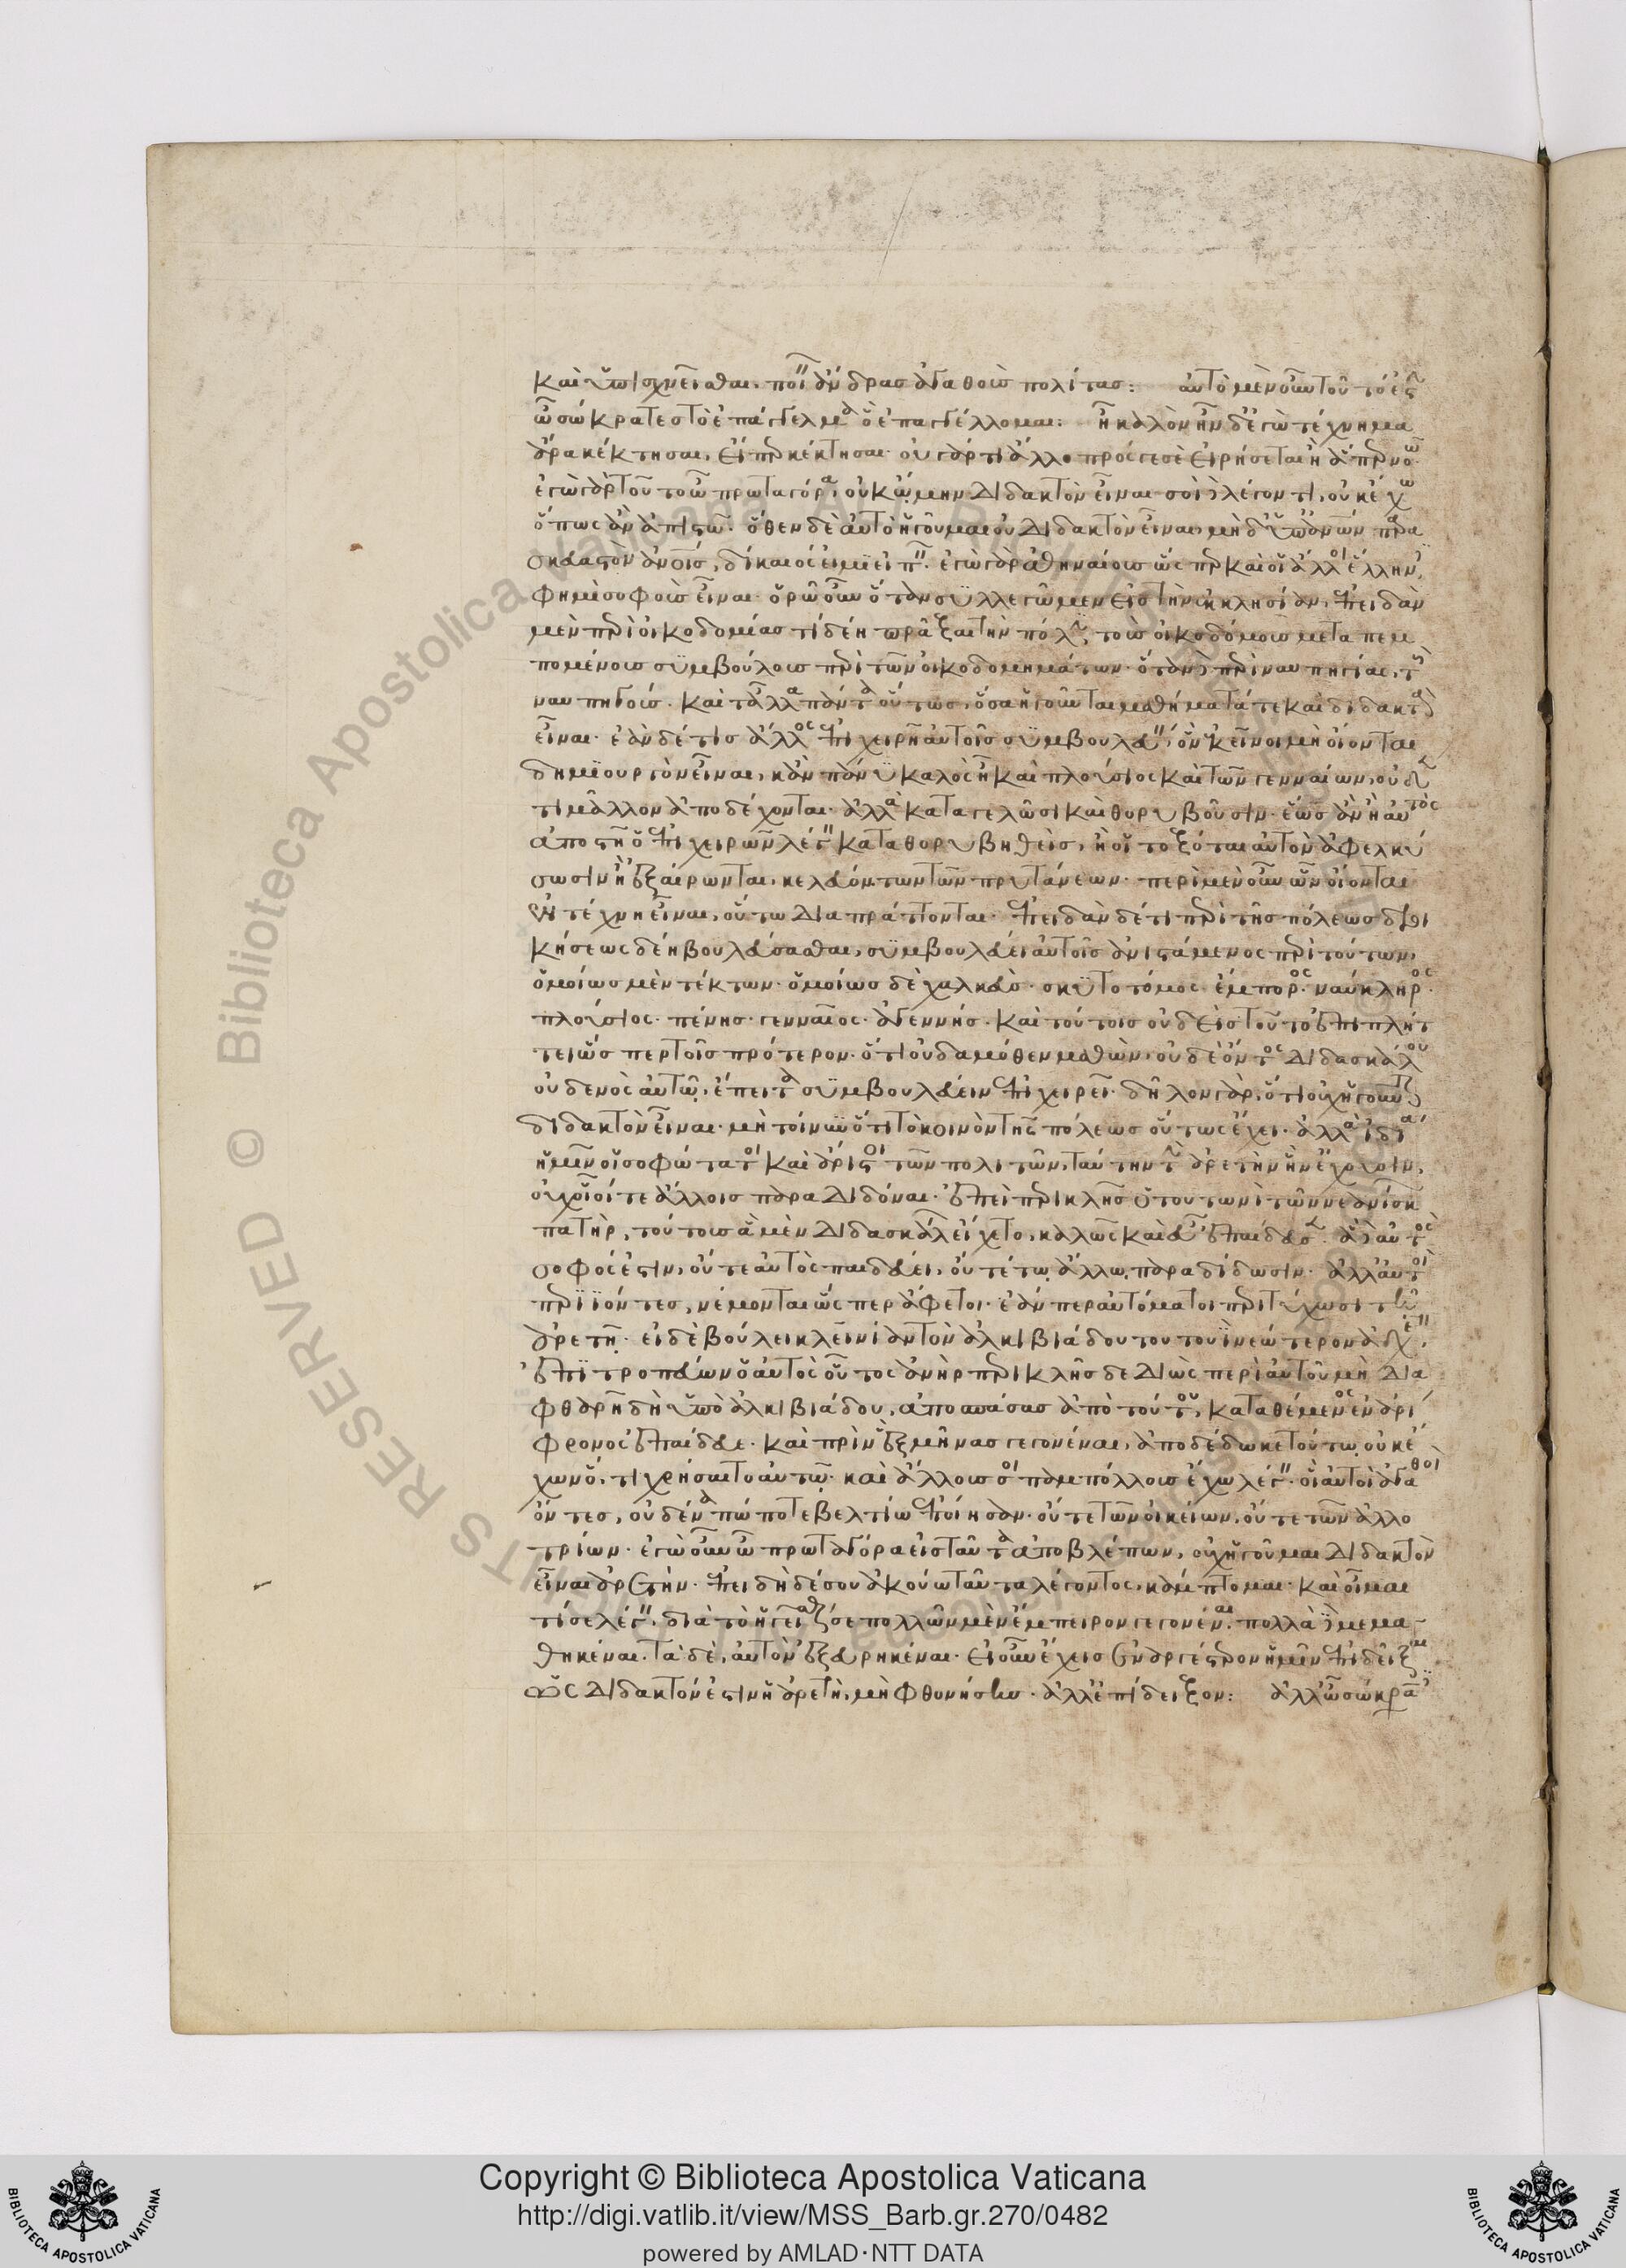 καὶ ὑπισχνεῖσθαι ποιεῖν ἄνδρας ἀγαθοὺς πολίτας: αὐτὸ μὲν οὖν τοῦτό ἐστιν
ὦ σώκρατες τὸ ἐπάγγελμα ὃ ἐπαγγέλλομαι: ἦ καλὸν ἦν δ' ἐγὼ τέχνημα
ἄρα κέκτησαι, εἴπερ κέκτησαι· οὐ γάρ τι ἄλλο πρός γε σὲ εἰρήσεται ἢ ἅπερ νοῶ·
ἐγὼ γὰρ τοῦτο ὦ πρωταγόρα, οὐκ ᾤμην διδακτὸν εἶναι· σοὶ δὲ λέγοντι, οὐκ ἔχω
ὅπως ἂν ἀπιστῶ· ὅθεν δὲ αὐτὸ ἡγοῦμαι οὐ διδακτὸν εἶναι, μὴ δ' ὑπ' ἀνθρώπων παρα
σκευαστὸν ἀνθρώποις, δίκαιός εἰμι εἰπεῖν· ἐγὼ γὰρ ἀθηναίους ὥσπερ καὶ οἱ ἄλλοι ἕλληνες,
φημὶ σοφοὺς εἶναι· ὁρῶ οὖν ὅταν συλλεγῶμεν εἰς τὴν ἐκκλησίαν, ἐπειδὰν
μὲν περὶ οἰκοδομίας τι δέῃ πρᾶξαι τὴν πόλιν, τοὺς οἰκοδόμους μεταπεμ
πομένους συμβούλους περὶ τῶν οἰκοδομημάτων· ὅταν δὲ περὶ ναυπηγίας, τοὺς
ναυπηγούς· καὶ τἆλλα πάντα οὕτως, ὅσα ἡγοῦνται μαθήματά τε καὶ διδακτὰ
εἶναι· ἐὰν δέ τις ἄλλος ἐπιχειρῇ αὐτοῖς συμβουλεύειν, ὃν ἐκεῖνοι μὴ οἴονται
δημιουργὸν εἶναι, κἂν πάνυ καλὸς ᾖ καὶ πλούσιος καὶ τῶν γενναίων, οὐδέν
τι μᾶλλον ἀποδέχονται· ἀλλὰ καταγελῶσι καὶ θορυβοῦσιν· ἕως ἂν ἢ αὐτὸς
ἀποστῇ ὁ ἐπιχειρῶν λέγειν καταθορυβηθεὶς, ἢ οἱ τοξόται αὐτὸν ἀφελκύ
σωσιν ἢ ἐξαίρωνται, κελευόντων τῶν πρυτάνεων· περὶ μὲν οὖν ὧν οἴονται
ἐν τέχνῃ εἶναι, οὕτω διαπράττονται· ἐπειδὰν δέ τι περὶ τῆς πόλεως διοι
κήσεως δέῃ βουλεύσασθαι, συμβουλεύει αὐτοῖς ἀνιστάμενος περὶ τούτων,
ὁμοίως μὲν τέκτων· ὁμοίως δὲ χαλκεὺς· σκυτοτόμος· ἔμπορος· ναύκληρος·
πλούσιος· πένης· γενναῖος· ἀγεννής· καὶ τούτοις οὐδεὶς τοῦτο ἐπιπλήτ
τει ὥσπερ τοῖς πρότερον· ὅτι οὐδαμόθεν μαθὼν, οὐδὲ ὄντος διδασκάλου
οὐδενὸς αὐτῷ, ἔπειτα συμβουλεύειν ἐπιχειρεῖ· δῆλον γὰρ, ὅτι οὐχ ἡγοῦνται
διδακτὸν εἶναι· μὴ τοίνυν ὅτι τὸ κοινὸν τῆς πόλεως οὕτως ἔχει· ἀλλὰ ἰδίᾳ
ἡμῖν οἱ σοφώτατοι καὶ ἄριστοι τῶν πολιτῶν, ταύτην τὴν ἀρετὴν ἣν ἔχουσιν,
οὐχ οἷοί τε ἄλλοις παραδιδόναι· ἐπεὶ περικλῆς ὁ τουτωνὶ τῶν νεανίσκων
πατὴρ, τούτους ἃ μὲν διδασκάλων εἴχετο, καλῶς καὶ εὖ ἐπαίδευσεν· ἃ δὲ αὐτὸς
σοφός ἐστιν, οὔτε αὐτὸς παιδεύει, οὔτε τῳ ἄλλῳ παραδίδωσιν· ἀλλ' αὐτοὶ
περιϊόντες, νέμονται ὥσπερ ἄφετοι· ἐάν περ αὐτόματοι περιτύχωσι τῇ
ἀρετῇ· εἰ δὲ βούλει κλεινίαν τὸν ἀλκιβιάδου τουτουῒ νεώτερον ἀδελφὸν,
ἐπιτροπεύων ὁ αὐτὸς οὗτος ἀνὴρ περικλῆς δεδιὼς περὶ αὐτοῦ μὴ δια
φθαρῇ δὴ ὑπὸ ἀλκιβιάδου, ἀποσπάσας ἀπὸ τούτου, καταθέμενος ἐν ἀρί
φρονος ἐπαίδευε· καὶ πρὶν ἓξ μῆνας γεγονέναι, ἀπέδωκε τούτῳ οὐκ ἔ
χων ὅ,τι χρήσαιτο αὐτῷ· καὶ ἄλλους σοι παμπόλλους ἔχω λέγειν· οἳ αὐτοὶ ἀγαθοὶ
ὄντες, οὐδένα πώποτε βελτίω ἐποίησαν· οὔτε τῶν οἰκείων, οὔτε τῶν ἀλλο
τρίων· ἐγὼ οὖν ὦ πρωταγόρα εἰς ταῦτα ἀποβλέπων, οὐχ ἡγοῦμαι διδακτὸν
εἶναι ἀρετήν· ἐπειδὴ δέ σου ἀκούω ταῦτα λέγοντος, κάμπτομαι· καὶ οἶμαι
τί σε λέγειν, διὰ τὸ ἡγεῖσθαί σε πολλῶν μὲν ἔμπειρον γεγονέναι· πολλὰ δὲ μεμα
θηκέναι· τὰ δὲ, αὐτὸν ἐξευρηκέναι· εἰ οὖν ἔχεις ἐναργέστερον ἡμῖν ἐπιδεῖξαι
ὡς διδακτόν ἐστιν ἡ ἀρετὴ, μὴ φθονήσῃς· ἀλλ' ἐπίδειξον: ἀλλ' ὦ σώκρατες
Copyright © Biblioteca Apostolica Vaticana
http://digi.vatlib.it/view/MSS_Barb.gr.270/0482
powered by AMLAD·NTT DATA